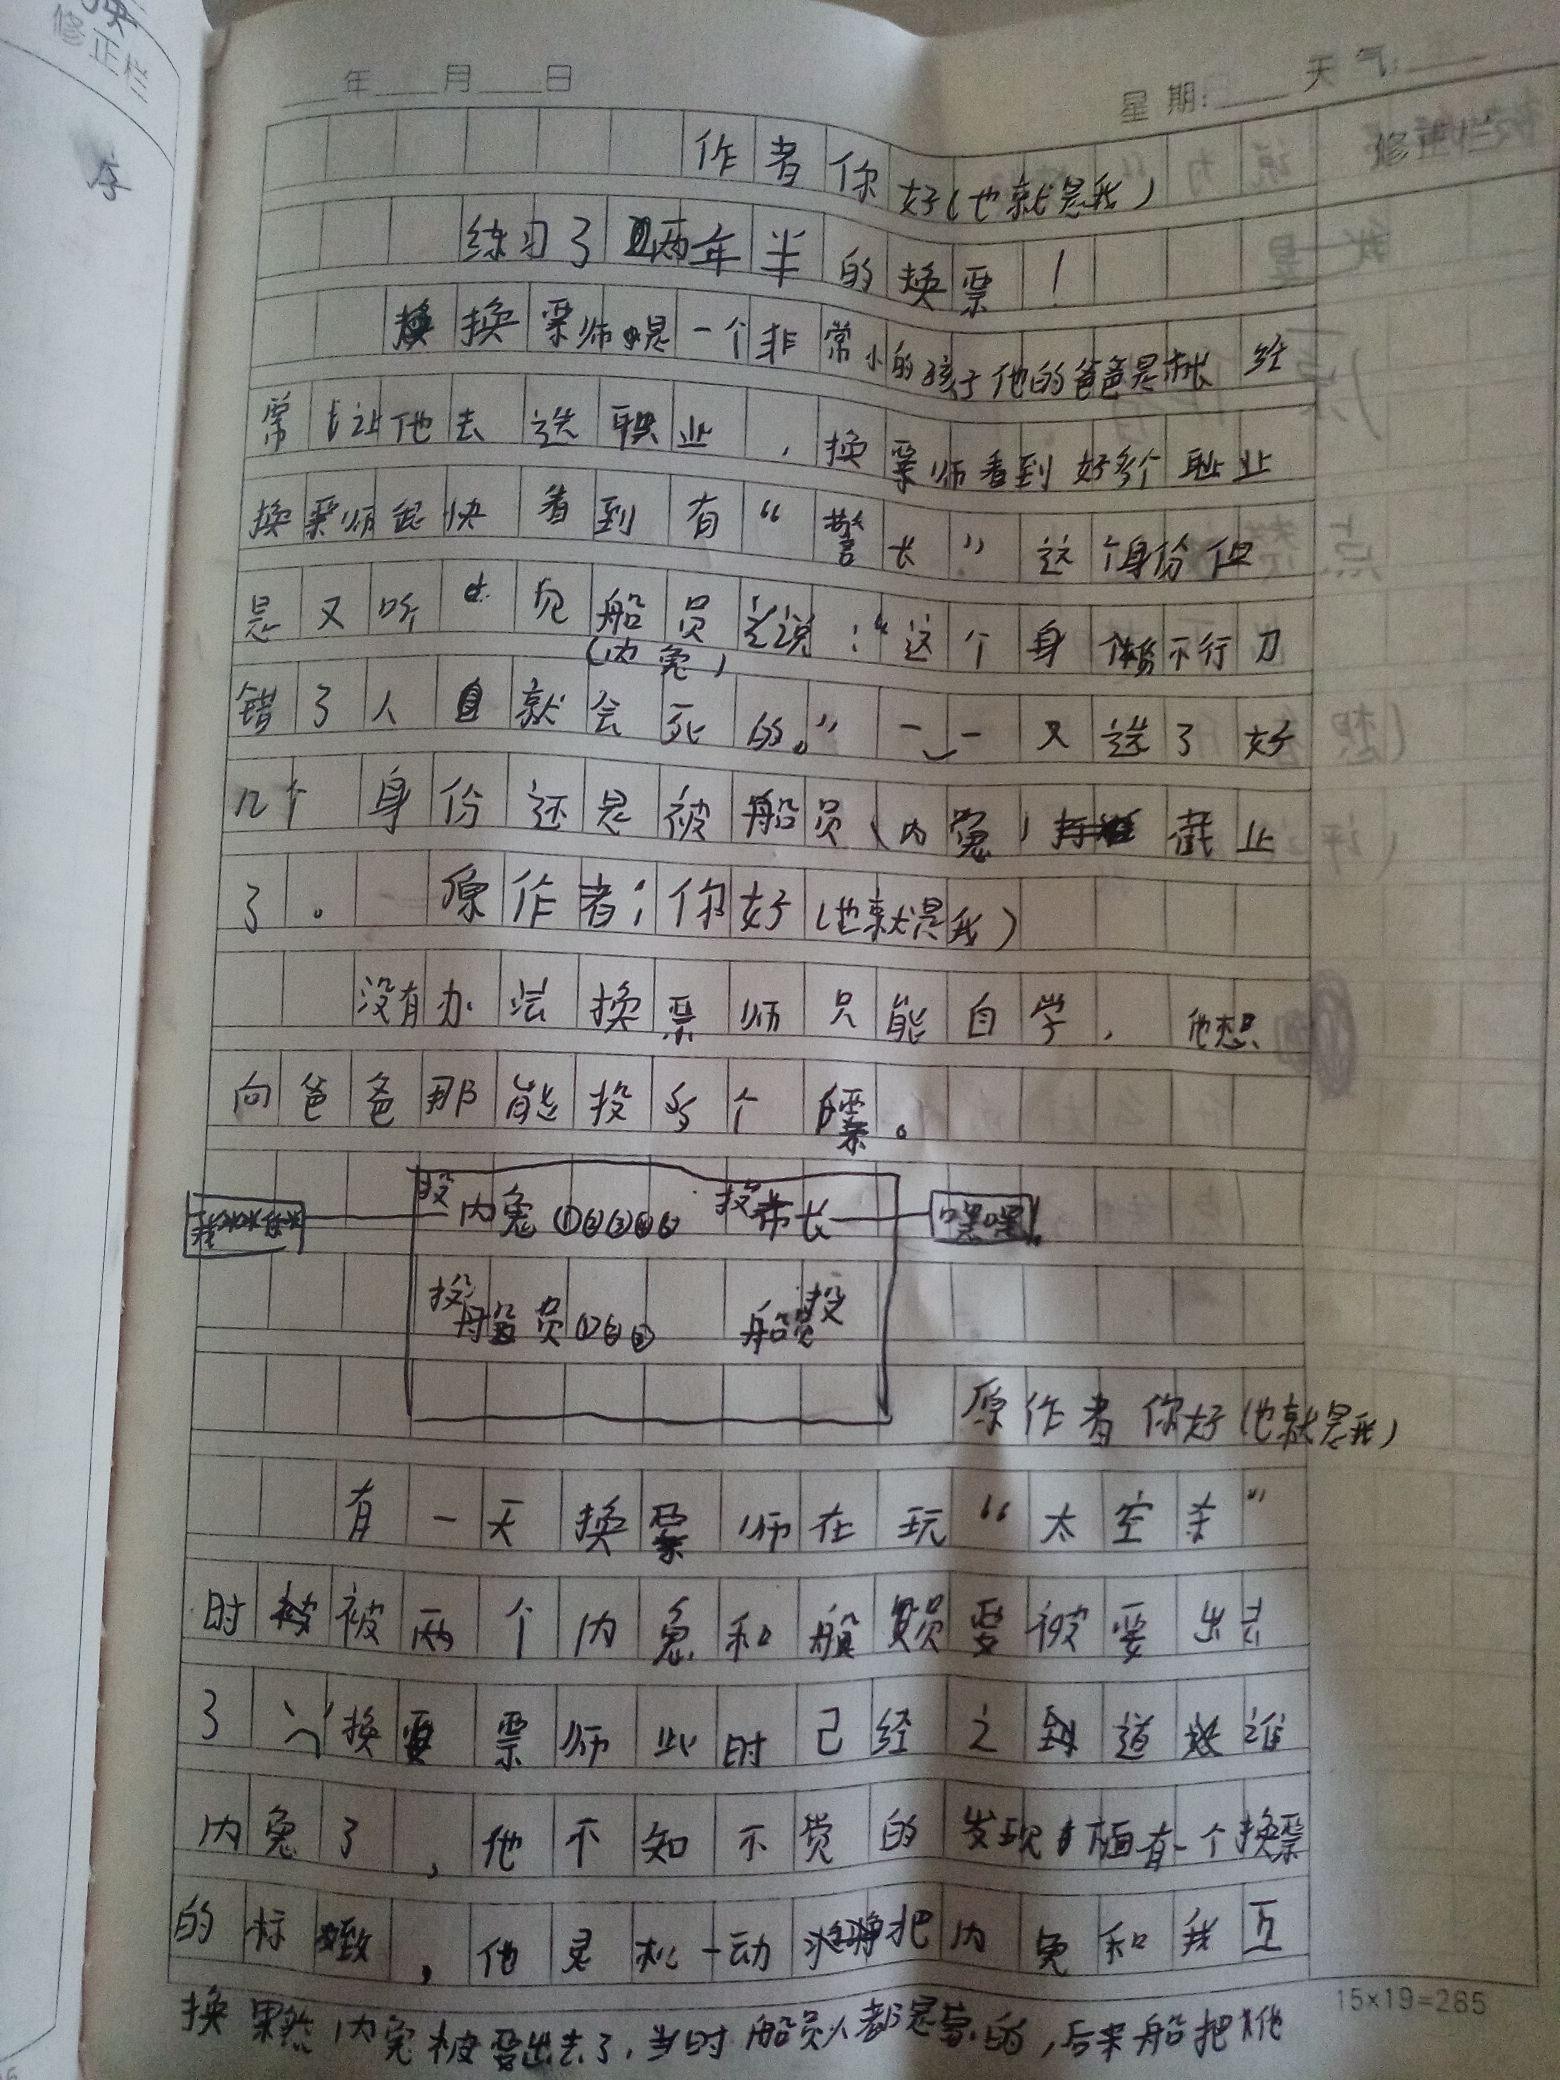 修正栏
序
年 月 日
星期: 天气:
作者你好(也就是我)
练习了两年半的换票!
换票师是一个非常小的孩子他的爸爸是市长经
常让他去选职业,换票师看到好多个职业
换票师很快看到有“警长”这个身份但
是又听 船员说:“这个身份不行刀
(内鬼)
错了人 就会死的。” 又选了好
几个身份还是被船员(内鬼)截止
了。 原作者:你好(也就是我)
没有办法换票师只能自学,他想
向爸爸那能投多个票。
投内鬼①②③④⑤ 投市长 嘿嘿!
投船员①②③ 船员投
原作者你好(也就是我)
有一天换票师在玩“太空杀”
时被两个内鬼和船员要被要出去
了换票师此时已经之到道谁
内鬼了,他不知不觉的发现 面有一个换票
的标致,他灵机一动 把内鬼和我互
换果然内鬼被要出去了,当时船员人都是蒙的,后来船把他
15×19=285